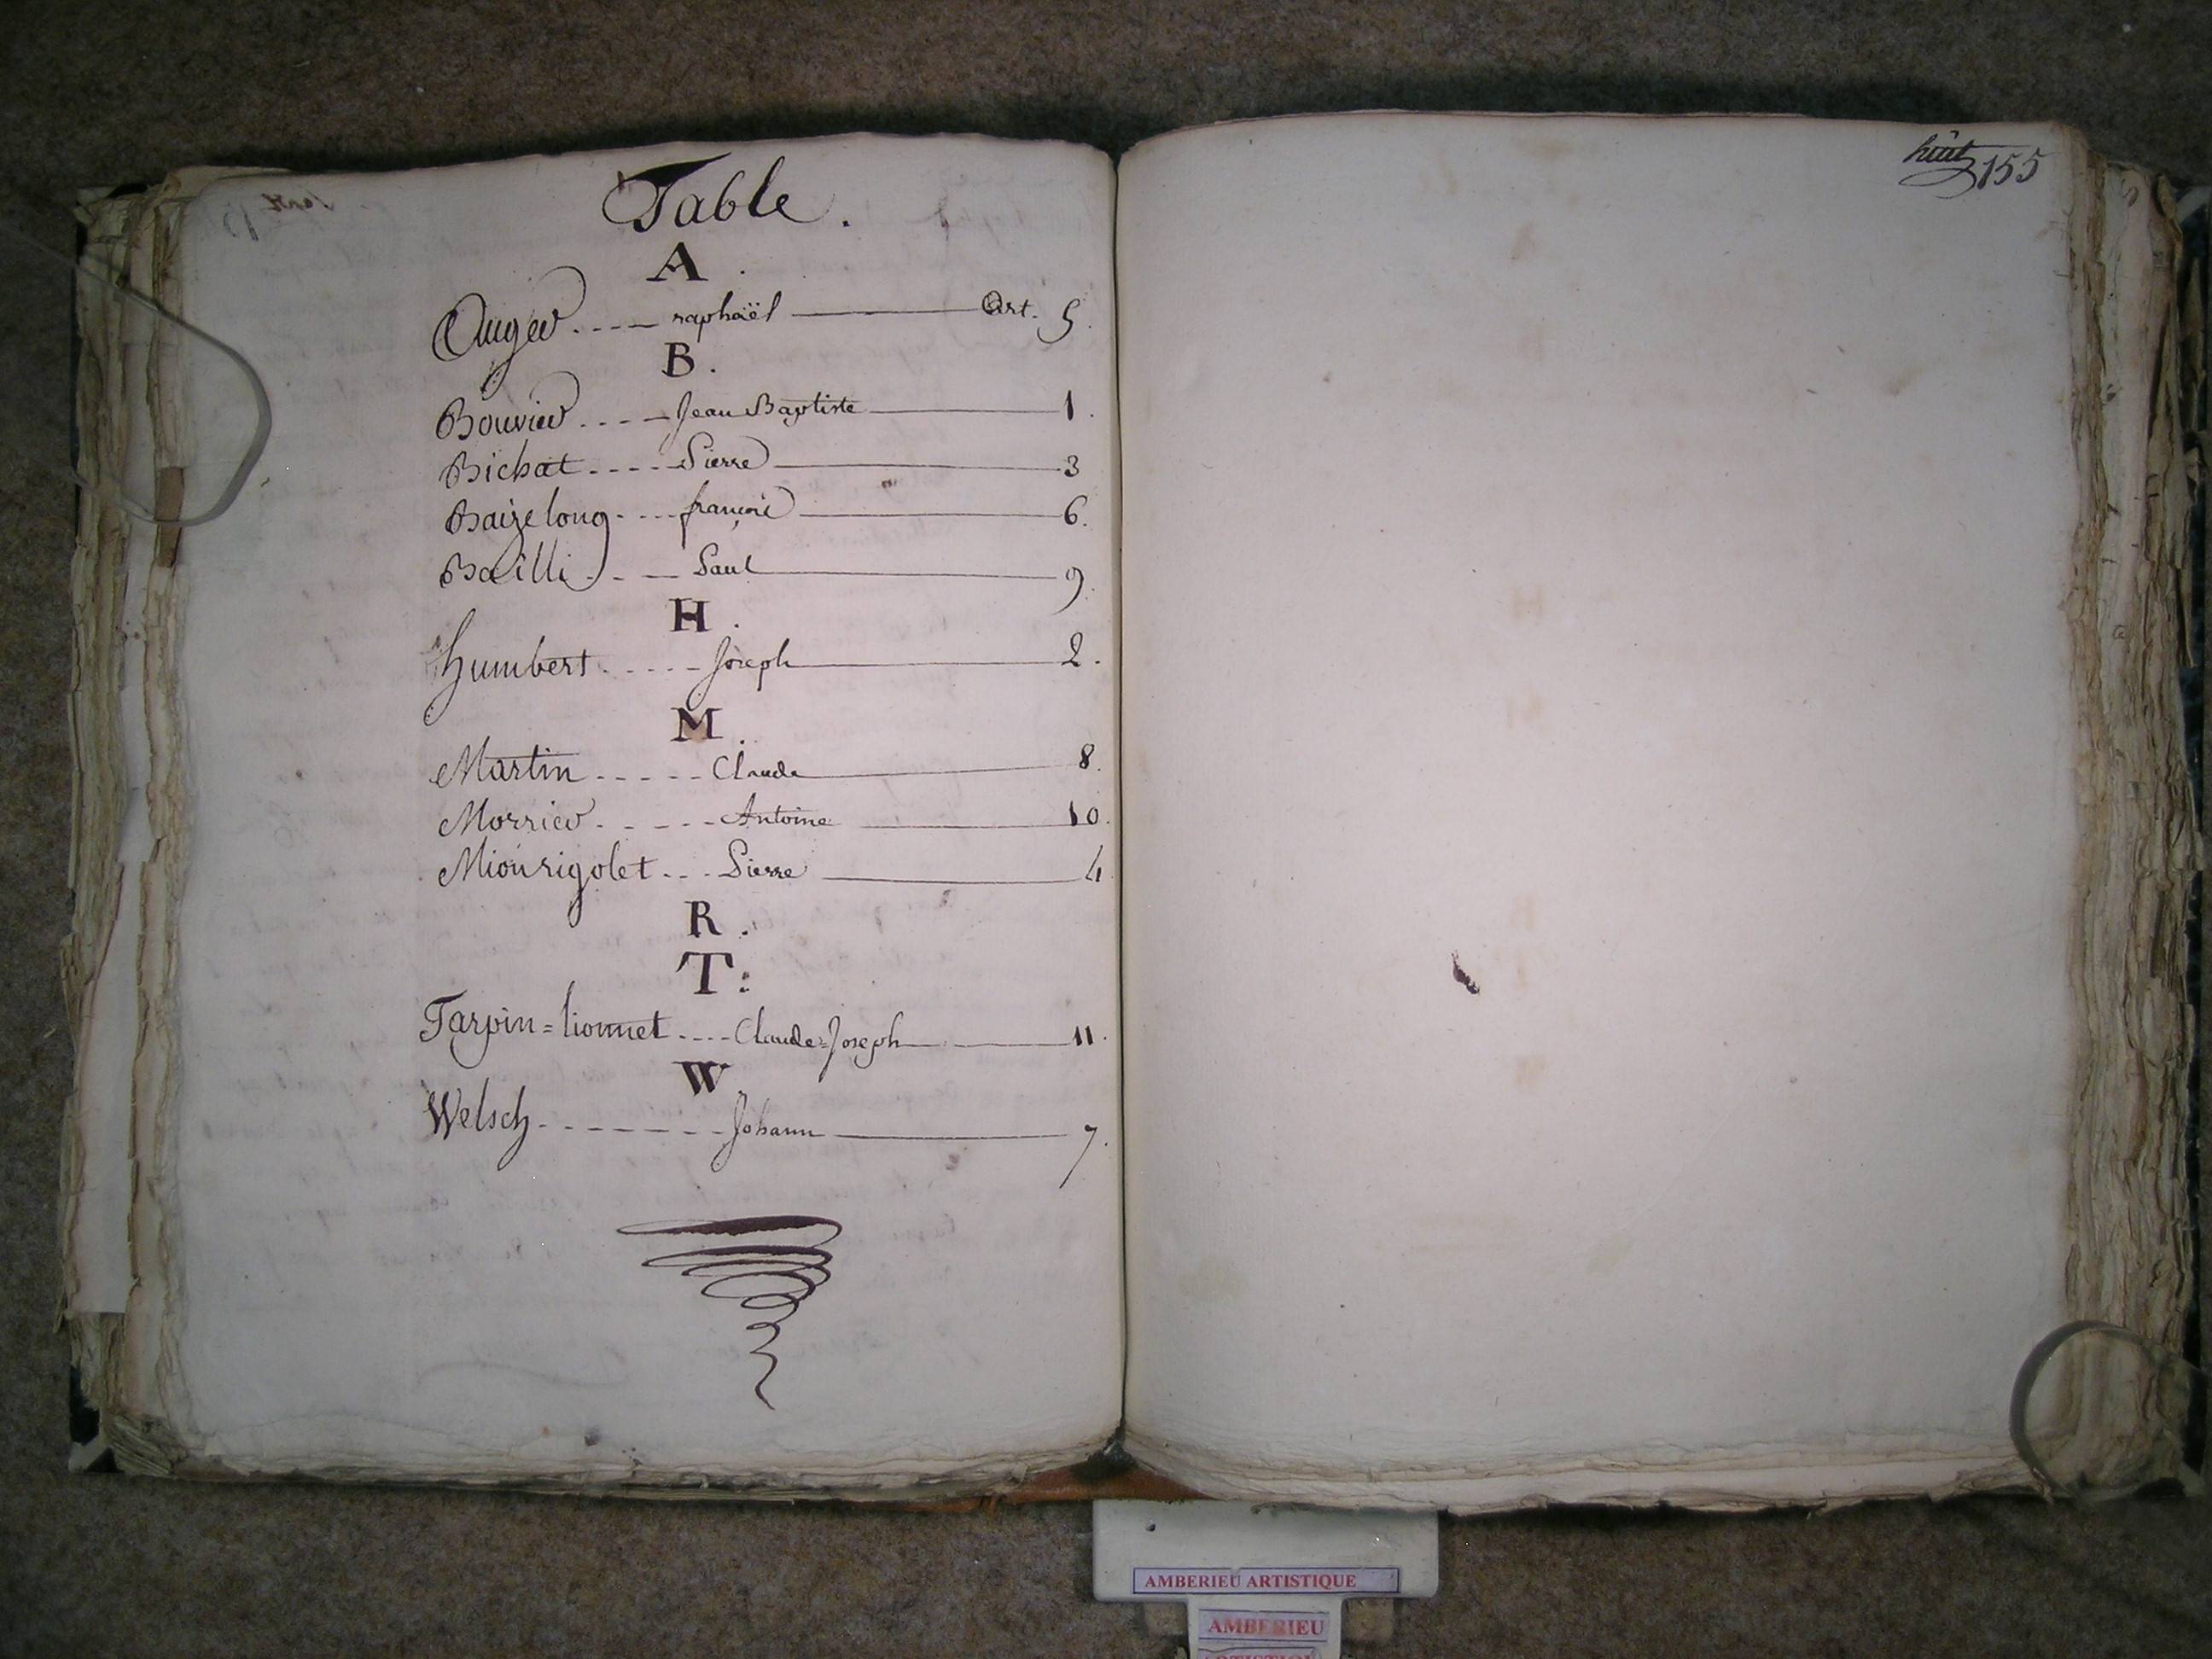 Table.
A.
Auger .---- raphaël ———— Art. 5.
B.
Bouvier .---- Jean Baptiste ———— 1.
Bichat ---- Pierre ———— 3
Baizelong ---- françois ———— 6.
Bailli --- Paul ———— 9.
H.
humbert ----- Joseph ———— 2.
M.
Martin ----- Claude ———— 8.
Morrier ----- Antoine ———— 10.
Mionrigolet --- Pierre ———— 4
R.
T:
Tarpin = lionnet .... Claude=Joseph ———— 11.
W
Welsch -------- Johann ———— 7.
huit 155
AMBERIEU ARTISTIQUE
AMBERIEU
ARTISTIQUE